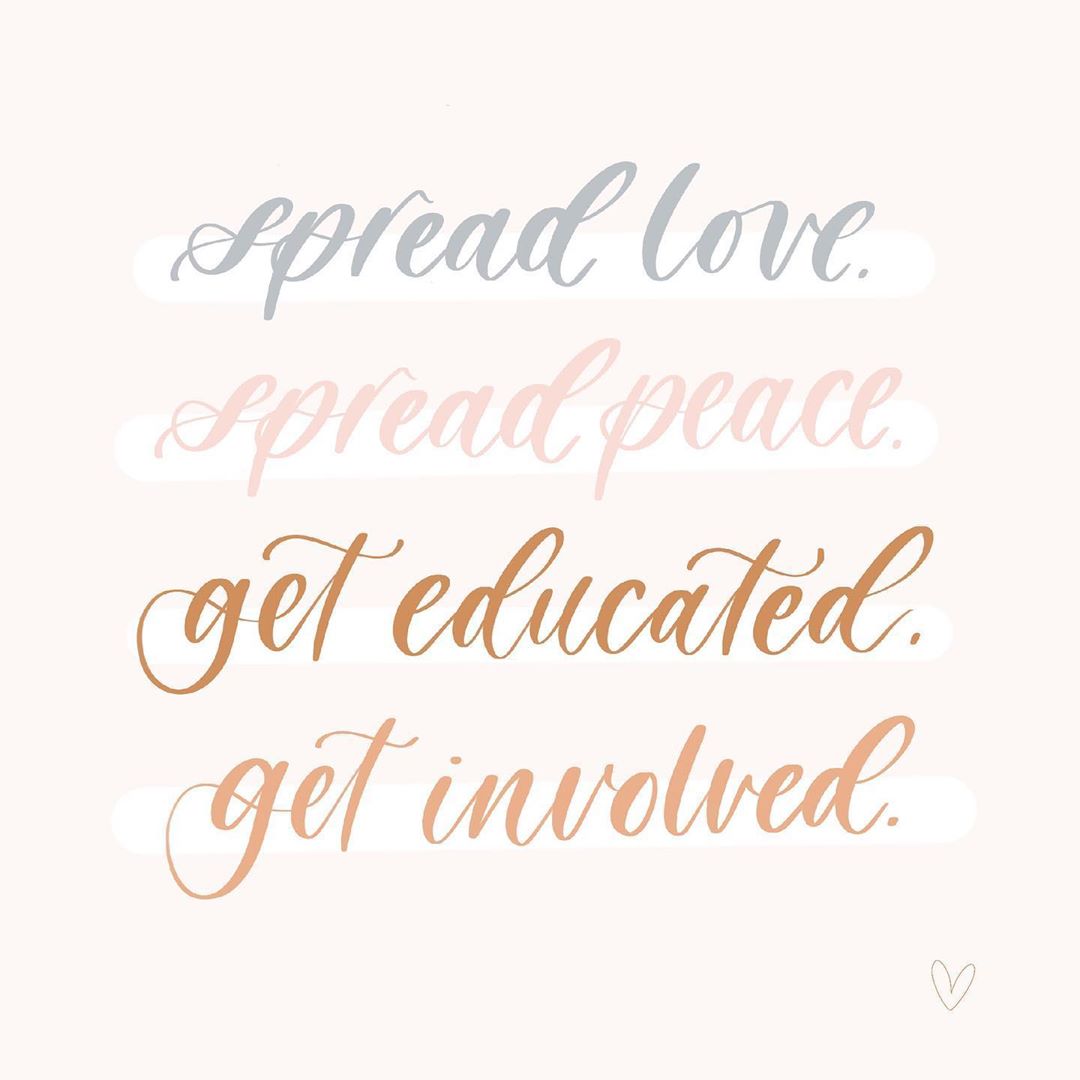 spread love.
spread peace.
get educated.
get involved.